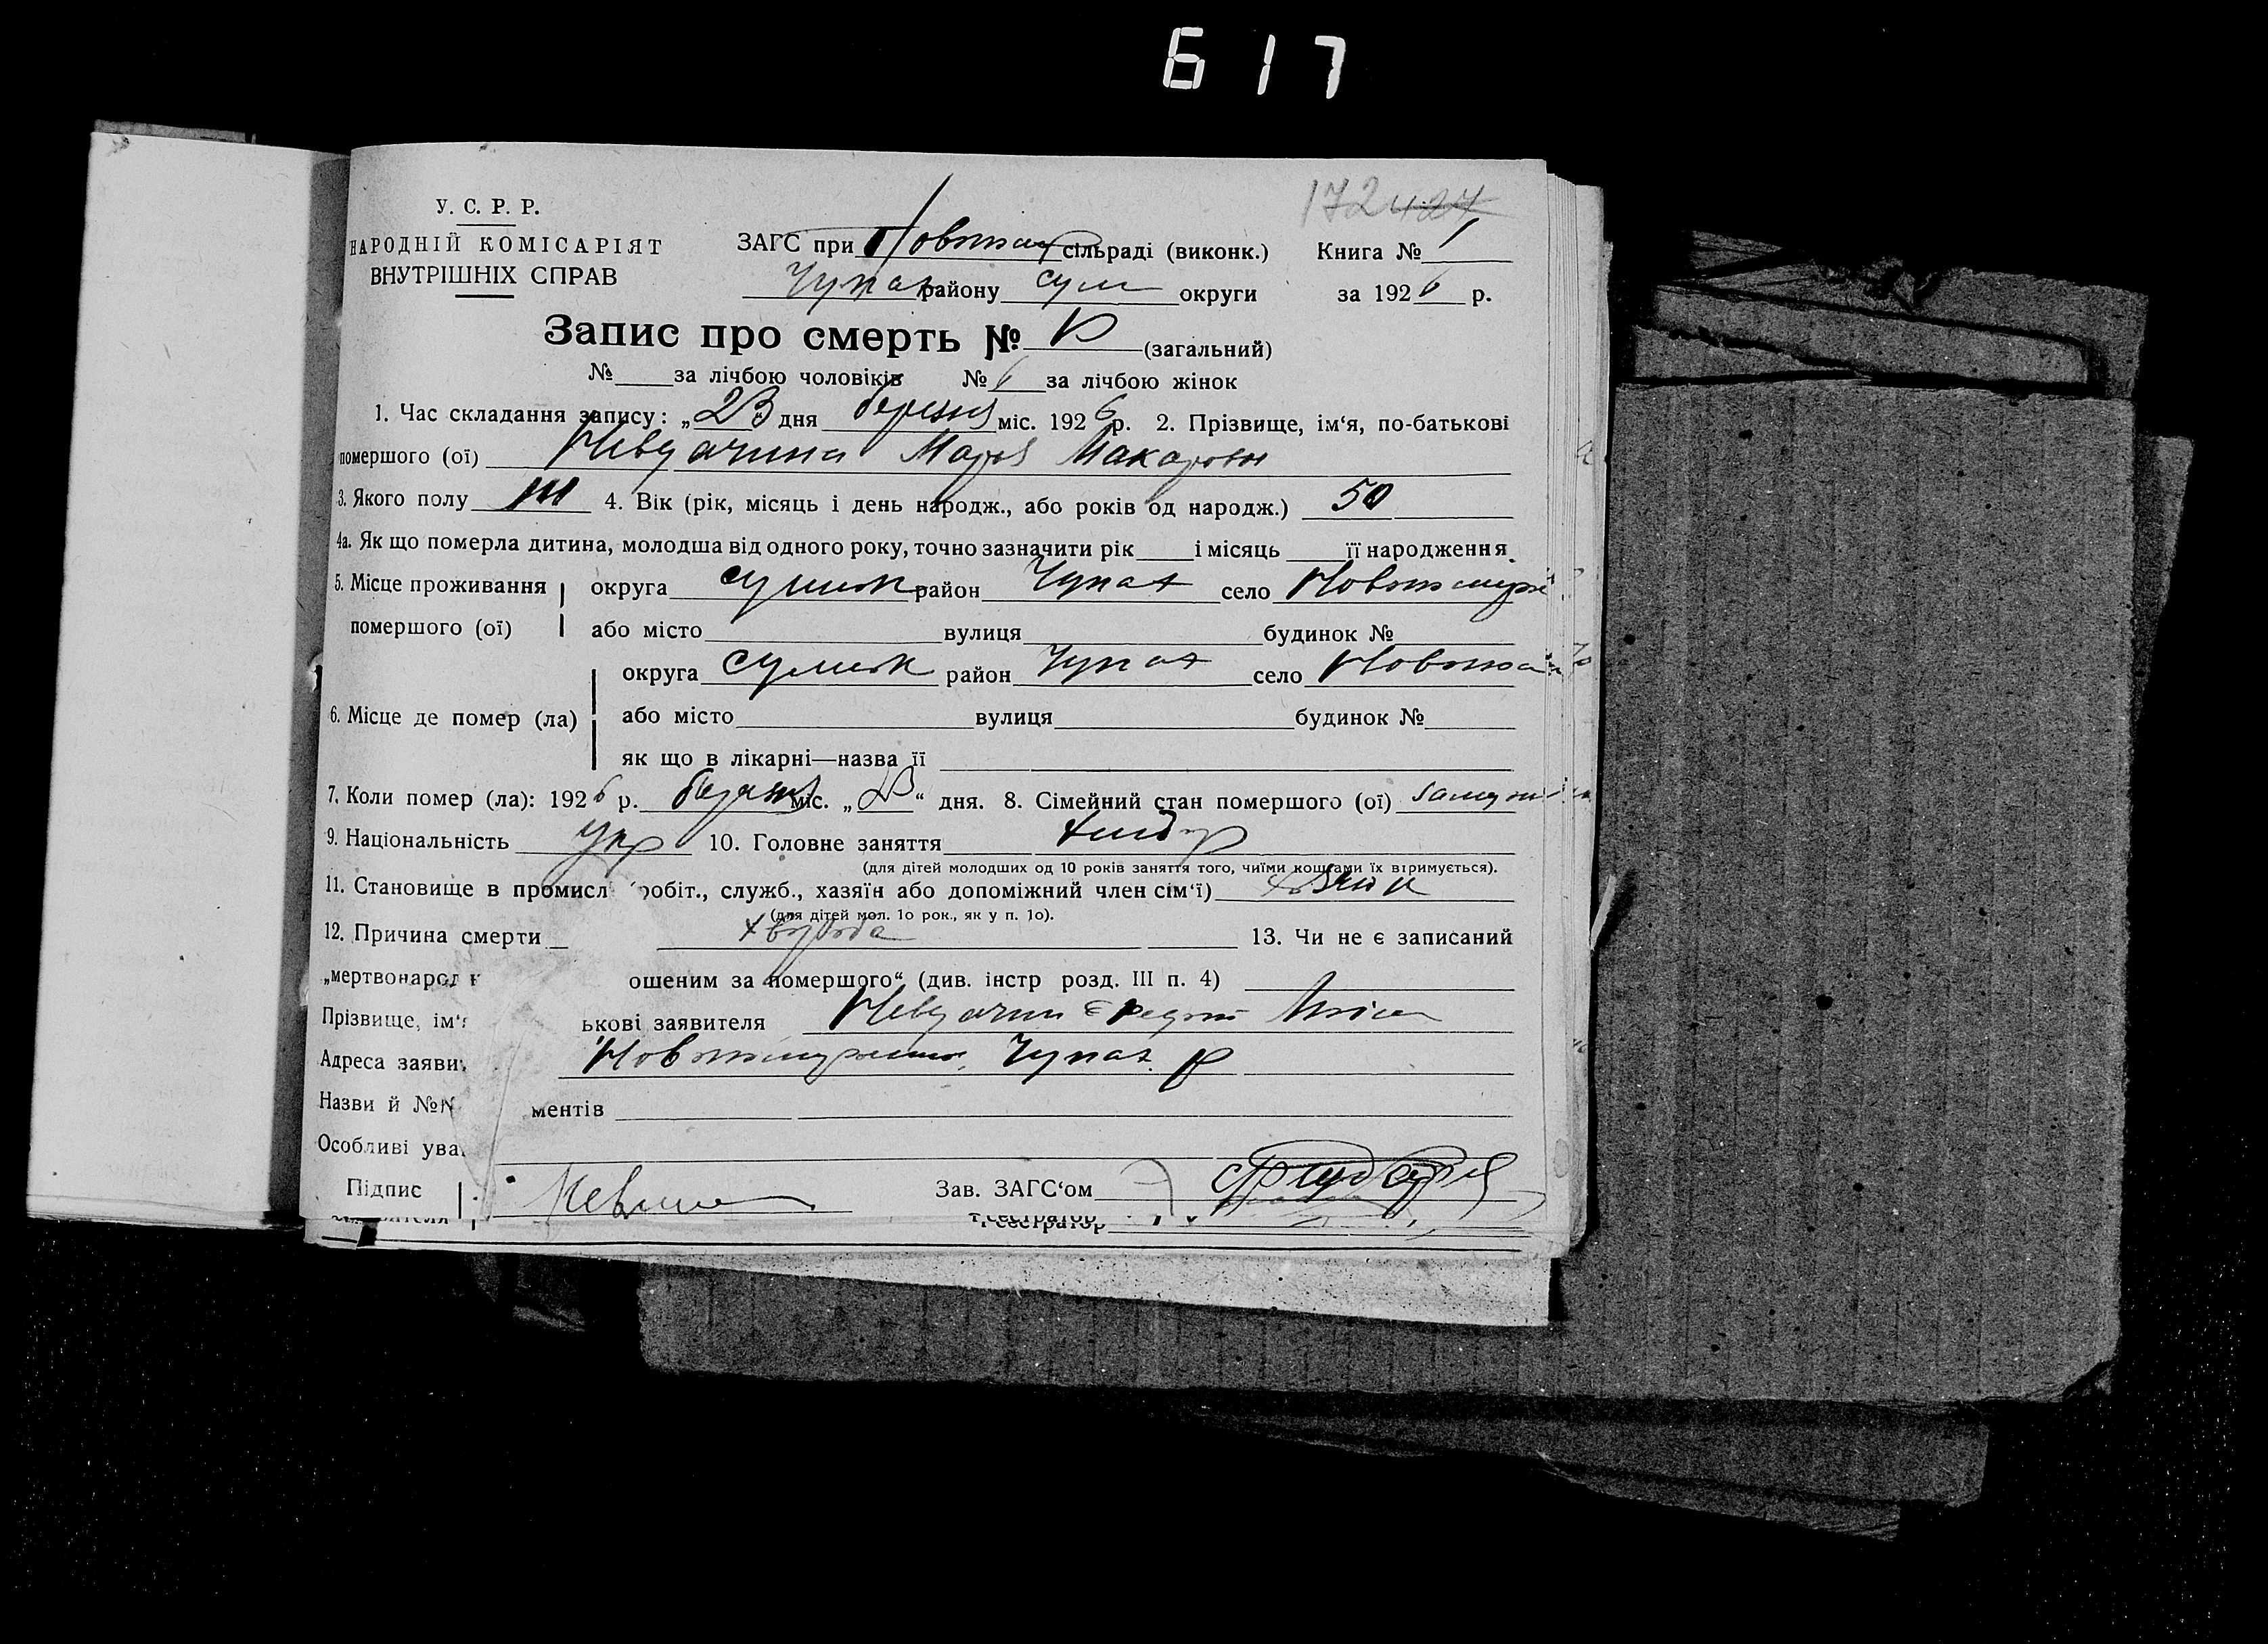 617
172 427
У. С. Р. Р.
НАРОДНІЙ КОМІСАРІЯТ
ВНУТРІШНІХ СПРАВ
ЗАГС при сільраді (виконк.) Книга № 1
Чупах району сум округи за 1926 р.
Запис про смерть № (загальний)
№ за лічбою чоловіків № 6 за лічбою жінок
1. Час складання запису: „23 дня березня міс. 1926 р. 2. Прізвище, ім‘я, по-батькові
помершого (ої) Невдачина Марія Макаровн
3. Якого полу 4. Вік (рік, місяць і день народж., або років од народж.) 50
4а. Як що померла дитина, молодша від одного року, точно зазначити рік і місяць її народження
5. Місце проживання округа сумськ район Чупах село
помершого (ої) або місто вулиця будинок №
округа сумськ район Чупах село
6. Місце де помер (ла) або місто вулиця будинок №
як що в лікарні—назва її
7. Коли помер (ла): 1926 р. березня міс. „23“ дня. 8. Сімейний стан помершого (ої)
9. Національність укр 10. Головне заняття хлібор
(для дітей молодших од 10 років заняття того, чиїми коштами їх втримується).
11. Становище в промисл робіт., служб., хазяїн або допоміжний член сім‘ї)
(для дітей мол. 10 рок., як у п. 10).
12. Причина смерти хвороба 13. Чи не є записаний
„мертвонарод ошеним за помершого“ (див. інстр розд. III п. 4)
Прізвище, ім‘я ькові заявителя Невдачин
Адреса заяви Чупах. р
Назви й №№ ментів
Особливі ува
Підпис Зав. ЗАГС‘ом